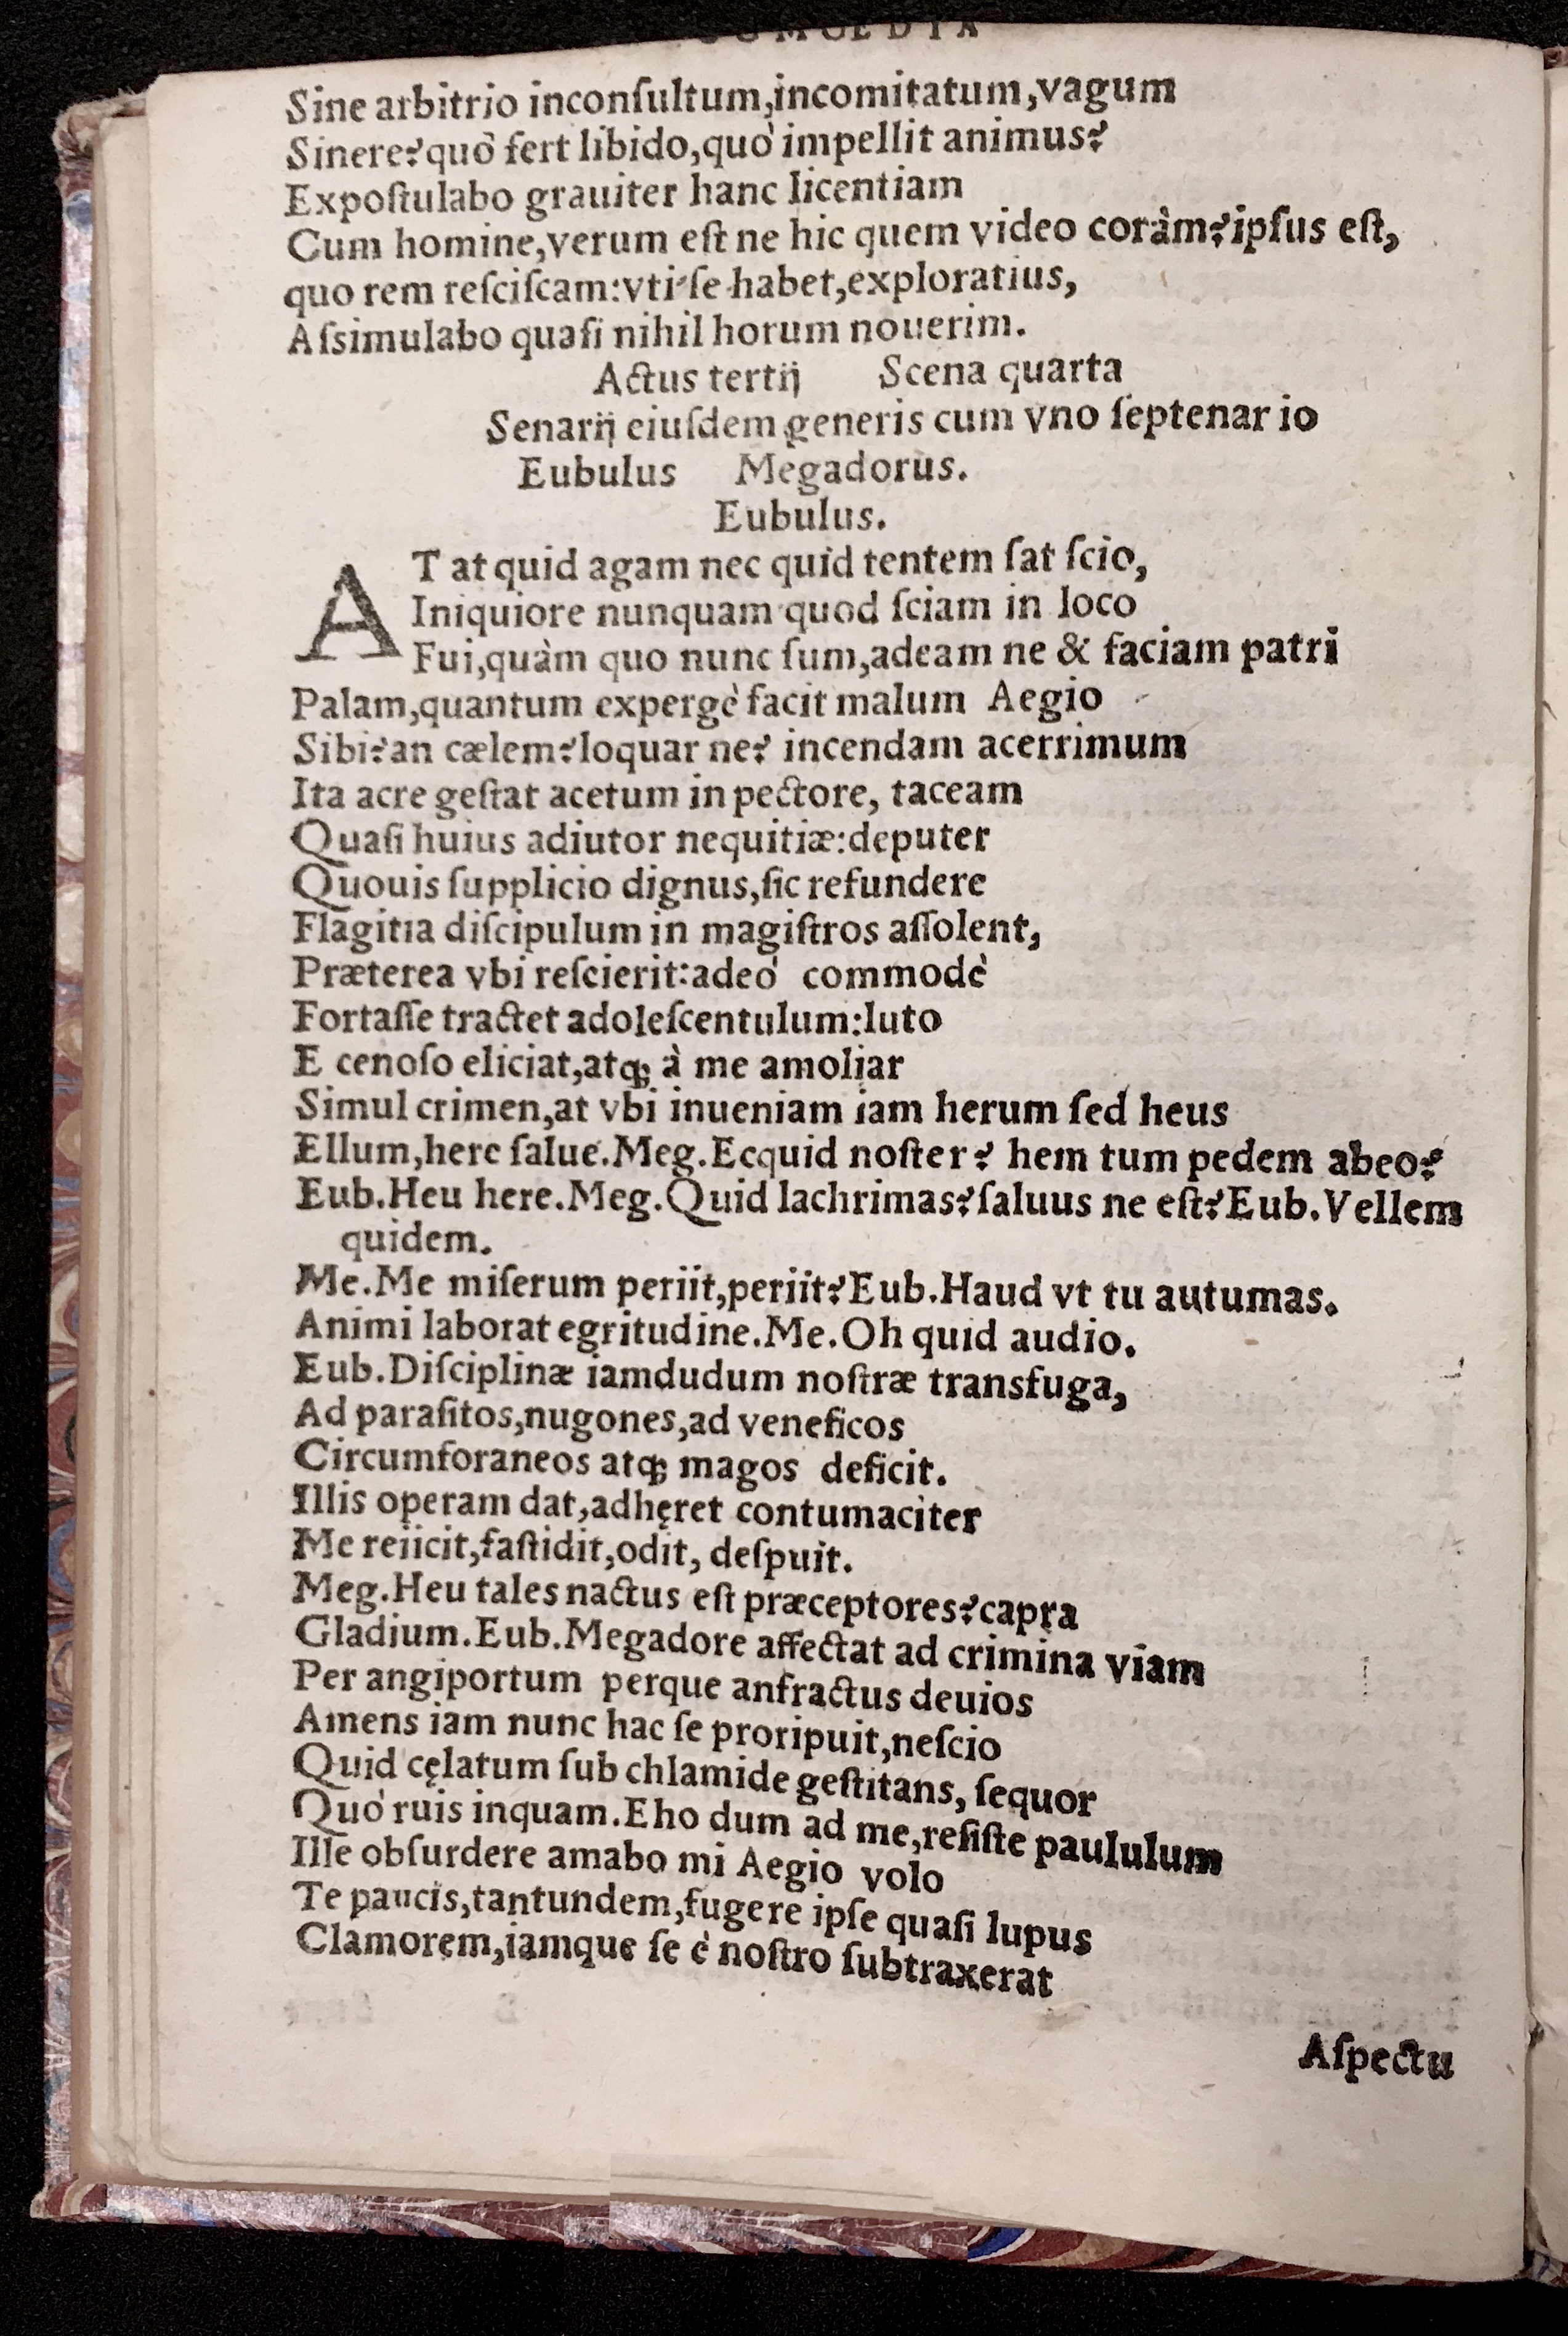 COMOEDIA
Sine arbitrio inconſultum,incomitatum,vagum
Sinere?quò fert libido,quò impellit animus?
Expoſtulabo grauiter hanc licentiam
Cum homine,verum eſt ne hic quem video coràm?ipſus eſt,
quo rem reſciſcam:vti ſe habet,exploratius,
Aſsimulabo quaſi nihil horum nouerim.
Actus tertij Scena quarta
Senarij eiuſdem generis cum vno ſeptenar io
Eubulus Megadorus.
Eubulus.
AT at quid agam nec quid tentem ſat ſcio,
Iniquiore nunquam quod ſciam in loco
Fui,quàm quo nunc ſum,adeam ne & faciam patri
Palam,quantum expergè facit malum Aegio
Sibi?an cælem?loquar ne? incendam acerrimum
Ita acre geſtat acetum in pectore, taceam
Quaſi huius adiutor nequitiæ:deputer
Quouis ſupplicio dignus,ſic refundere
Flagitia diſcipulum in magiſtros aſſolent,
Præterea vbi reſcierit:adeò commodè
Fortaſſe tractet adoleſcentulum:luto
E cenoſo eliciat,atq; à me amoliar
Simul crimen,at vbi inueniam iam herum ſed heus
Ellum,here ſalue.Meg.Ecquid noſter? hem tum pedem abeo?
Eub.Heu here.Meg.Quid lachrimas?ſaluus ne eſt?Eub.Vellem
quidem.
Me.Me miſerum periit,periit?Eub.Haud vt tu autumas.
Animi laborat egritudine.Me.Oh quid audio.
Eub.Diſciplinæ iamdudum noſtræ transfuga,
Ad paraſitos,nugones,ad veneficos
Circumforaneos atq; magos deficit.
Illis operam dat,adhęret contumaciter
Me reiicit,faſtidit,odit, deſpuit.
Meg.Heu tales nactus eſt præceptores?capra
Gladium.Eub.Megadore affectat ad crimina viam
Per angiportum perque anfractus deuios
Amens iam nunc hac ſe proripuit,neſcio
Quid cęlatum ſub chlamide geſtitans, ſequor
Quò ruis inquam.Eho dum ad me,reſiſte paululum
Ille obſurdere amabo mi Aegio volo
Te paucis,tantundem,fugere ipſe quaſi lupus
Clamorem,iamque ſe è noſtro ſubtraxerat
Aſpectu